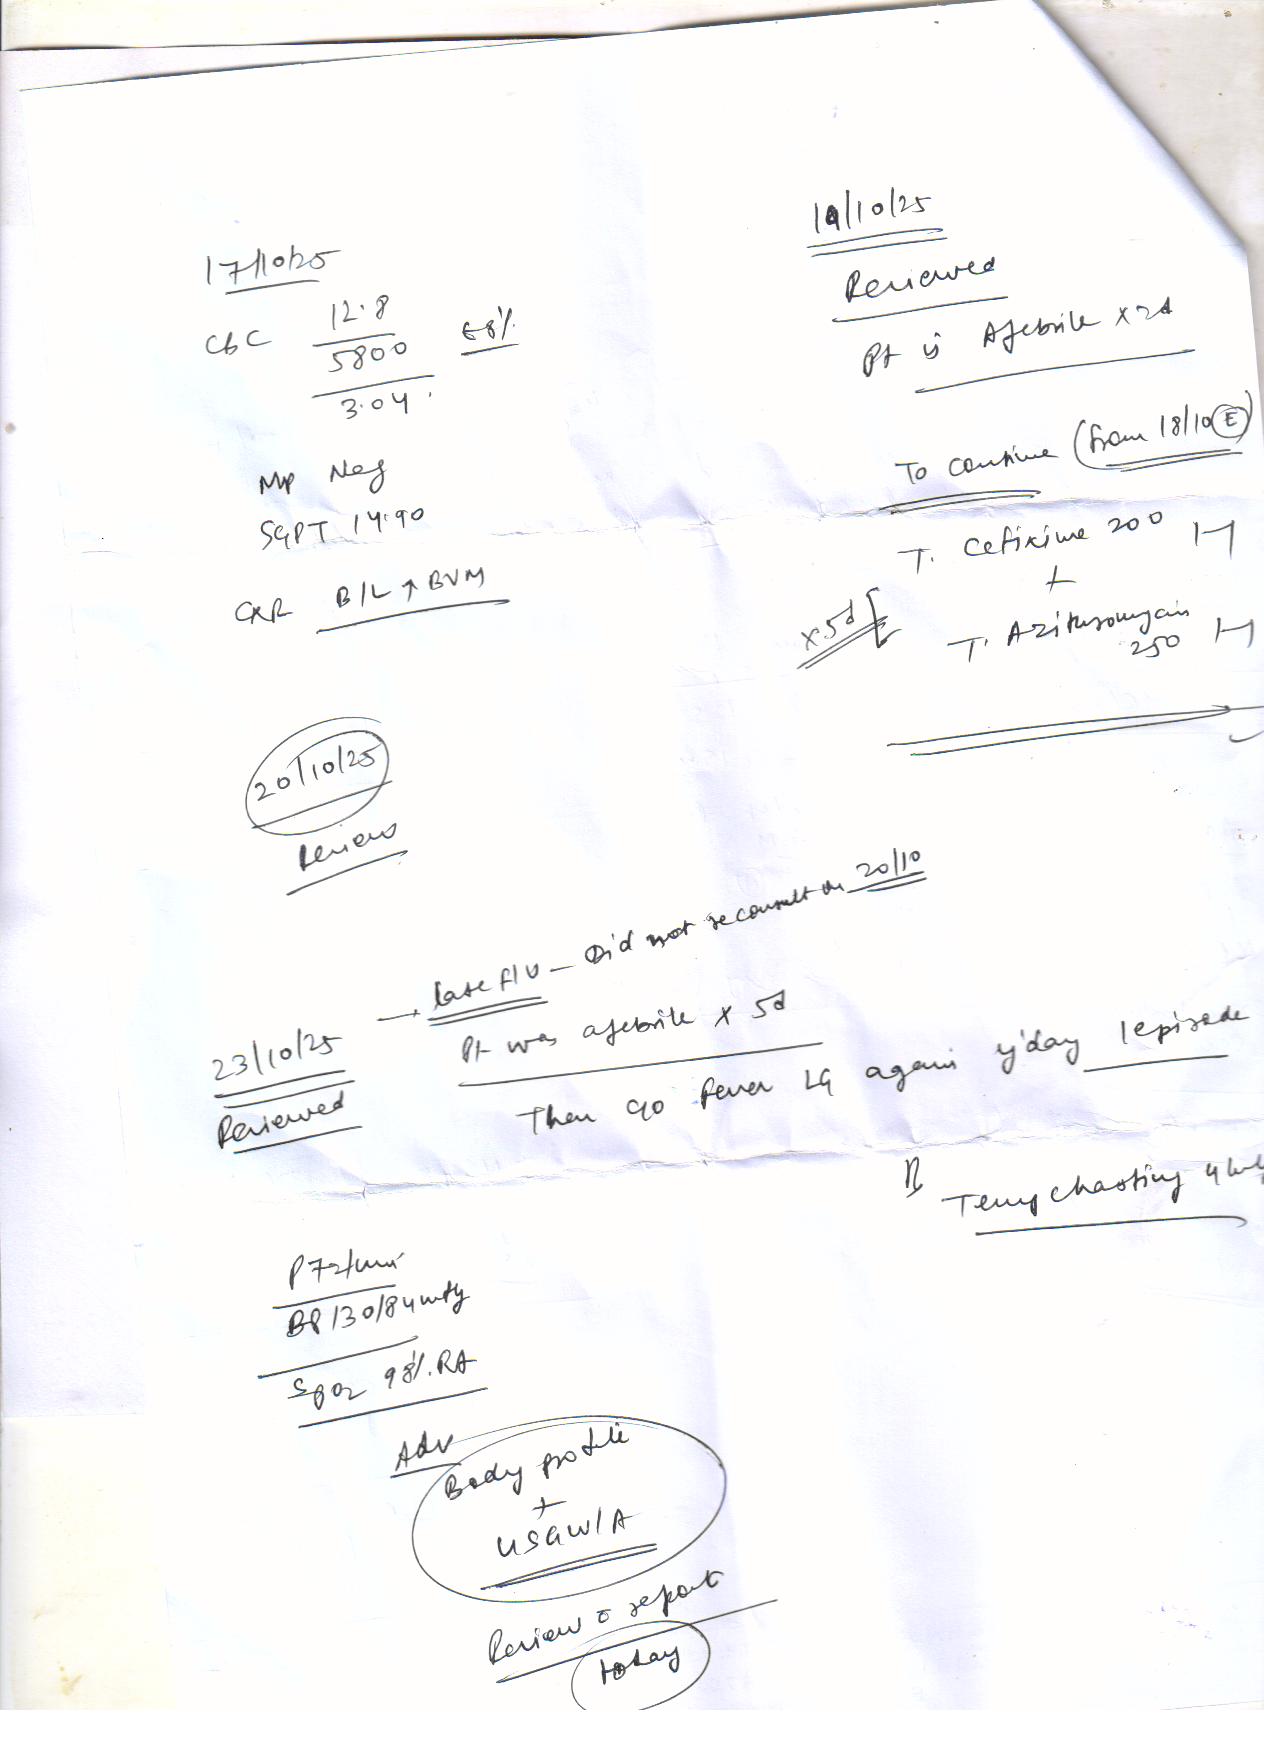 17/10/25
CBC 12.8
5800 68%
3.04
Mp Neg
SGPT 14.90
CXR B/L ↑ BVM
20/10/25
Review
19/10/25
Reviewed
Pt is Afebrile x 2d
To continue (from 18/10 E)
T. Cefixime 200 1-1
+
x 5d [
T. Azithromycin 250 1-1
23/10/25
Reviewed
→ late f/u — Did not reconsult on 20/10
Pt was afebrile x 5d
Then c/o fever LG again y'day 1 episode
Rx
Temp charting 4 hrly
P 72/min
BP 130/84 mmHg
SpO2 98% RA
Adv
Body profile
+
USG W/A
Review c report
today